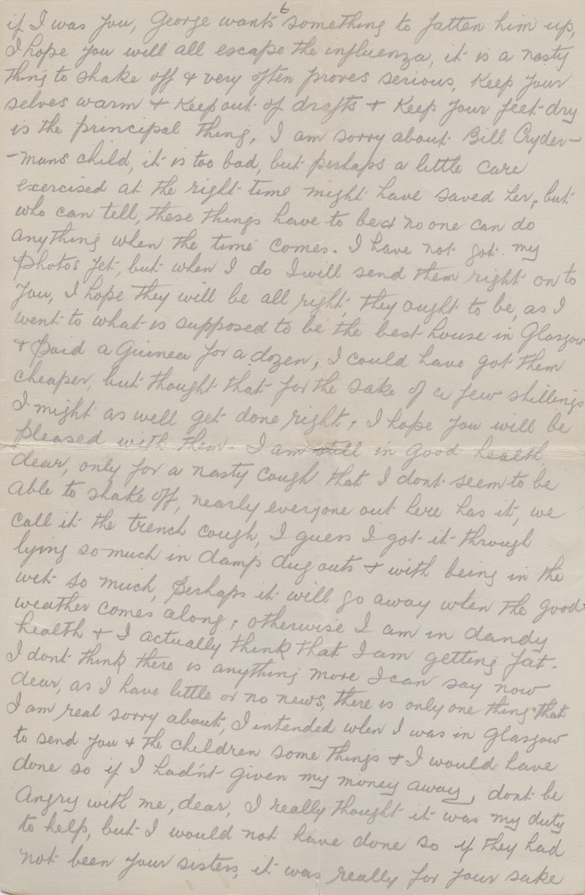 6
if I was you, George wants something to fatten him up,
I hope you will all escape the influenza, it is a nasty
thing to shake off & very often proves serious, Keep your
selves warm & Keep out of drafts & Keep your feet dry
is the principal thing, I am sorry about Bill Cryder-
-mans child, it is too bad, but perhaps a little care
exercised at the right time might have saved her, but
who can tell, these things have to be & no one can do
anything when the time comes. I have not got my
photos yet, but when I do I will send them right on to
you, I hope they will be all right, they ought to be, as I
went to what is supposed to be the best house in Glasgow
& Paid a Guinea for a dozen, I could have got them
cheaper, but thought that for the sake of a few shillings
I might as well get done right, I hope you will be
pleased with them. I am still in good health
dear, only for a nasty cough that I dont seem to be
able to shake off, nearly everyone out here has it, we
call it the trench cough, I guess I got it through
lying so much in damp dug outs & with being in the
wet so much, Perhaps it will go away when the good
weather comes along, otherwise I am in dandy
health & I actually think that I am getting fat.
I dont think there is anything more I can say now
dear, as I have little or no news, there is only one thing that
I am real sorry about, I intended when I was in Glasgow
to send you & the children some things & I would have
done so if I had'nt given my money away, dont be
Angry with me, dear, I really thought it was my duty
to help, but I would not have done so if they had
not been your sisters, it was really for your sake